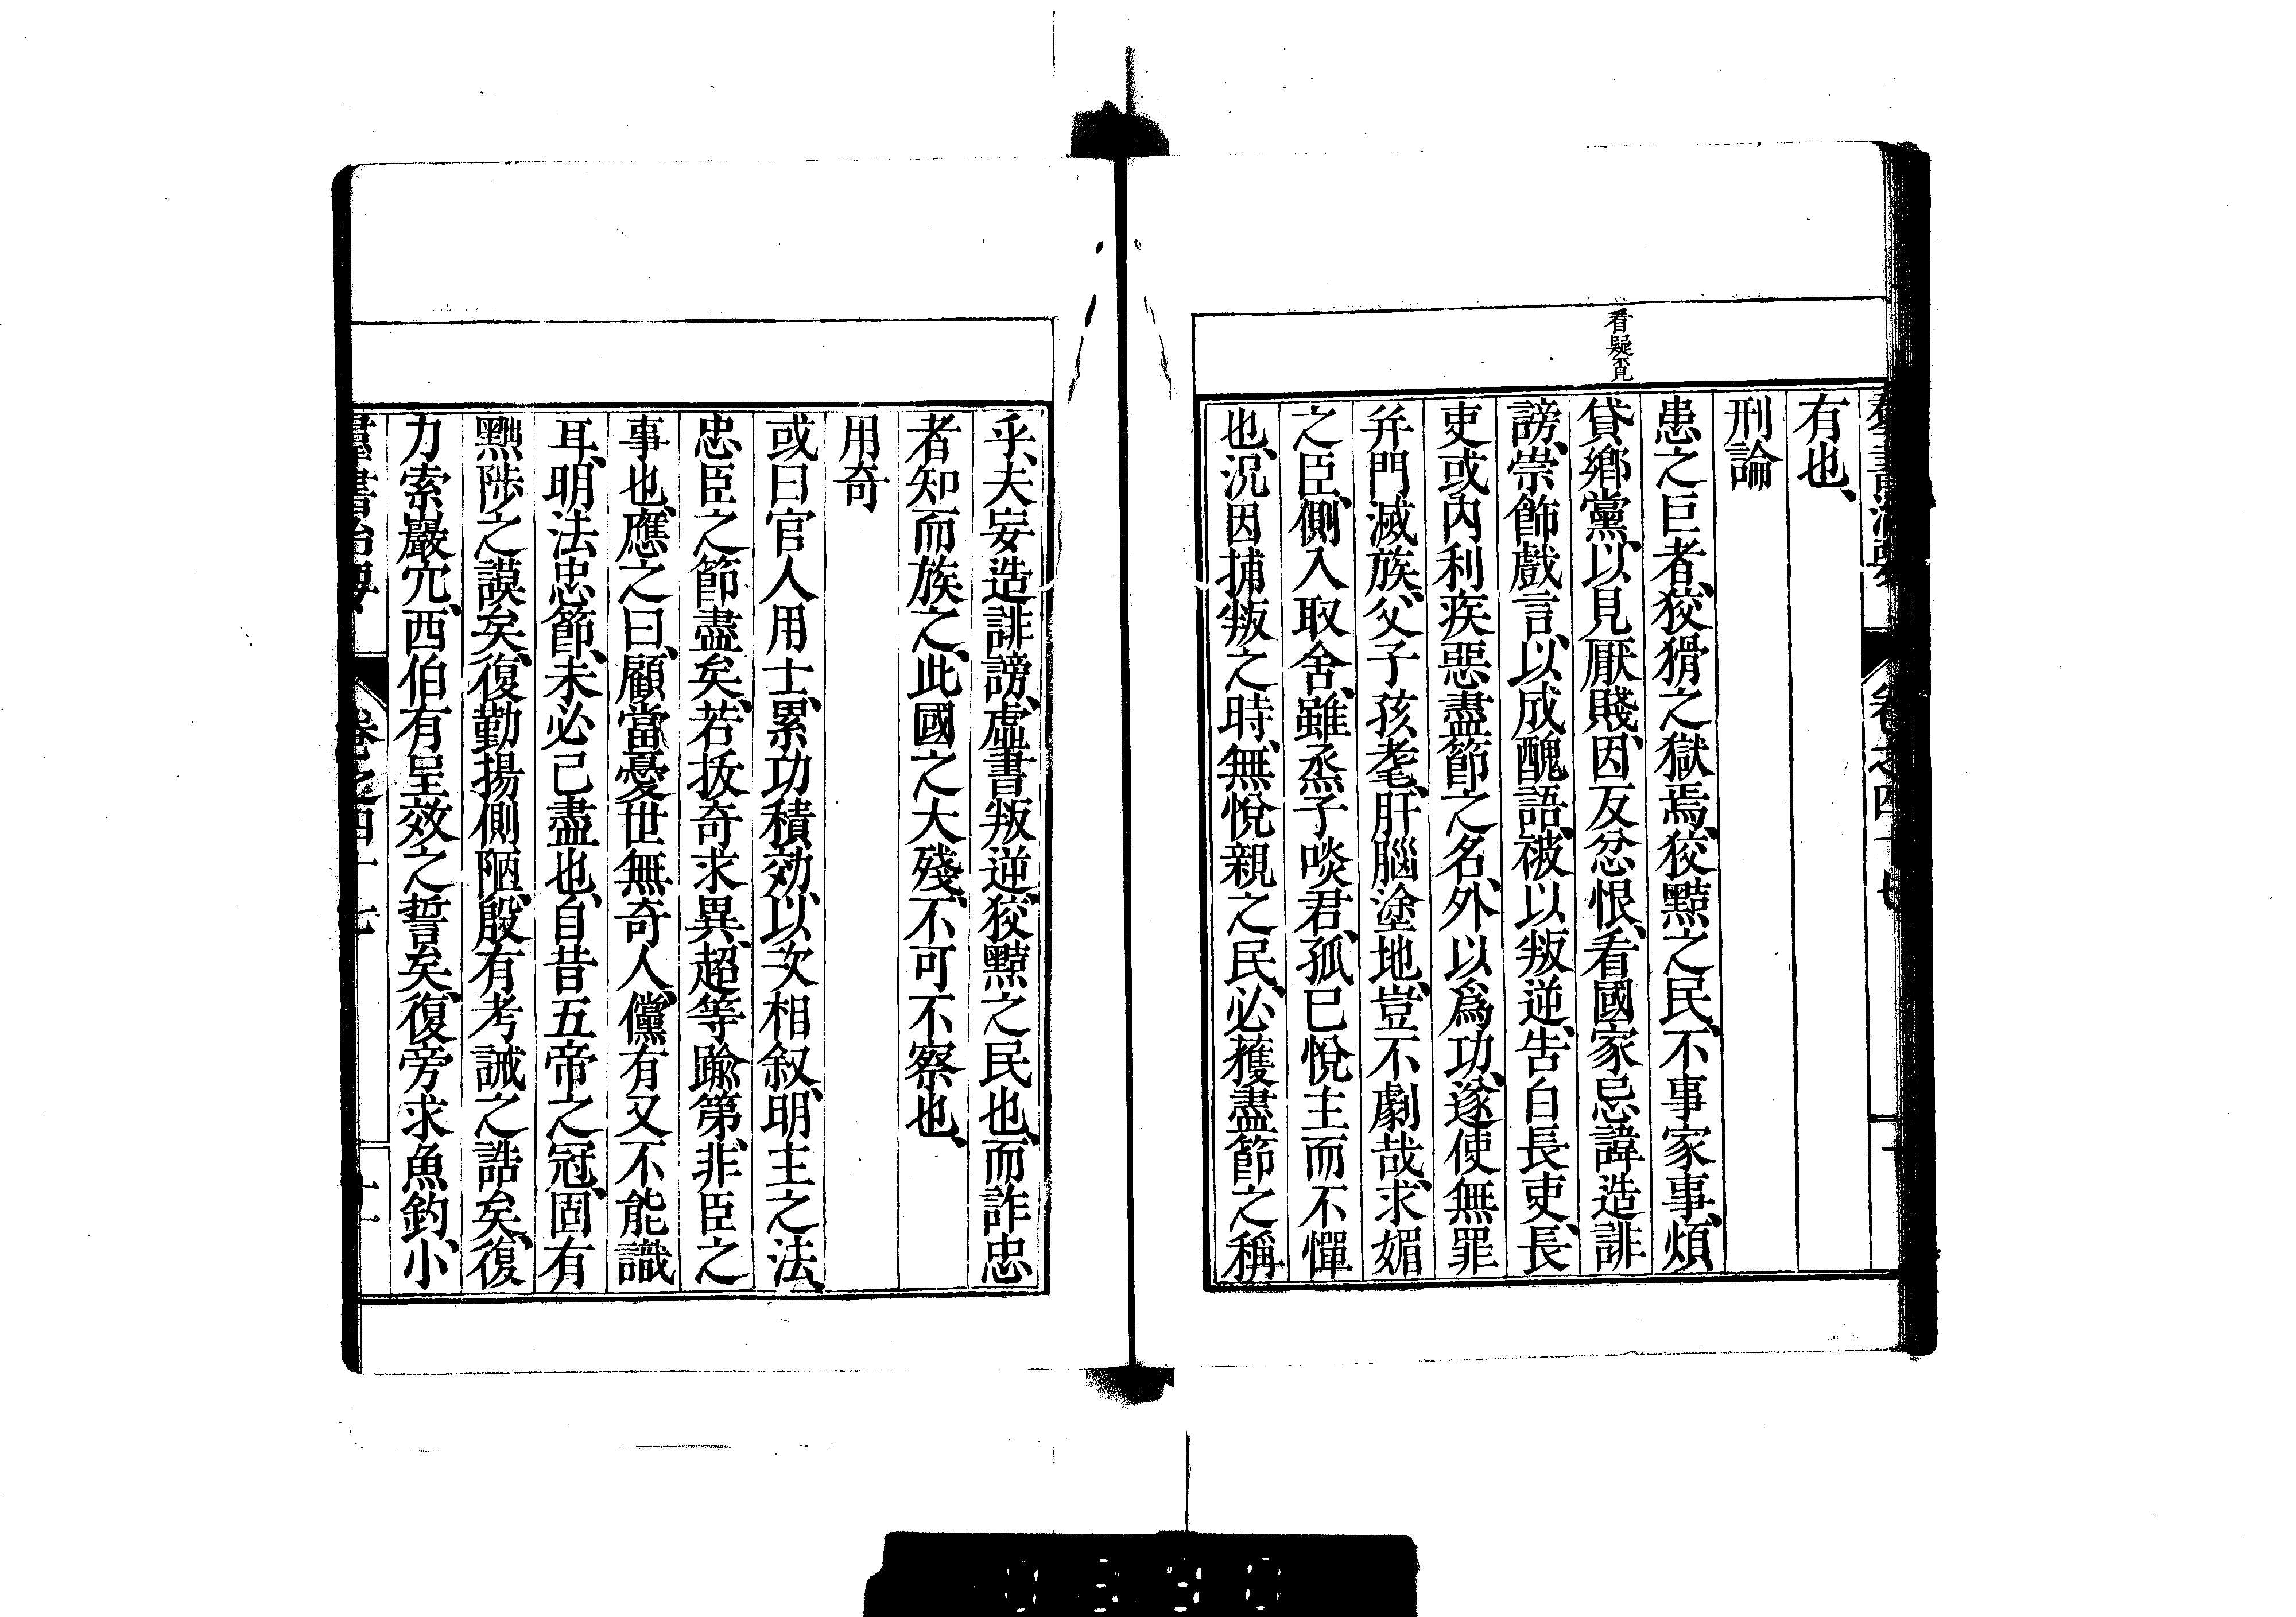 羣書治要 卷之四十七 十
看疑覓
有也、
刑論
患之巨者、狡猾之獄焉、狡黠之民、不事家事、煩
貸鄉黨、以見厭賤、因反忿恨、看國家忌諱造誹
謗、崇飾戲言、以成醜語、被以叛逆、告白長吏、長
吏或內利疾惡盡節之名、外以爲功、遂使無罪
幷門滅族、父子孩耄、肝腦塗地、豈不劇哉、求媚
之臣、側入取舍、雖烝子啖君、孤已悅主而不憚
也、況因捕叛之時、無悅親之民、必獲盡節之稱
乎、夫妄造誹謗、虛書叛逆、狡黠之民也、而詐忠
者知而族之、此國之大殘、不可不察也、
用奇
或曰官人用士、累功積効、以次相叙、明主之法、
忠臣之節盡矣、若拔奇求異、超等踰第、非臣之
事也、應之曰、顧當憂世無奇人、儻有又不能識
耳、明法忠節、未必己盡也、自昔五帝之冠、固有
黜陟之謨矣、復勤揚側陋、殷有考誡之誥矣、復
力索巖穴、西伯有呈效之誓矣、復旁求魚釣、小
羣書治要 卷之四十七 十一
0390